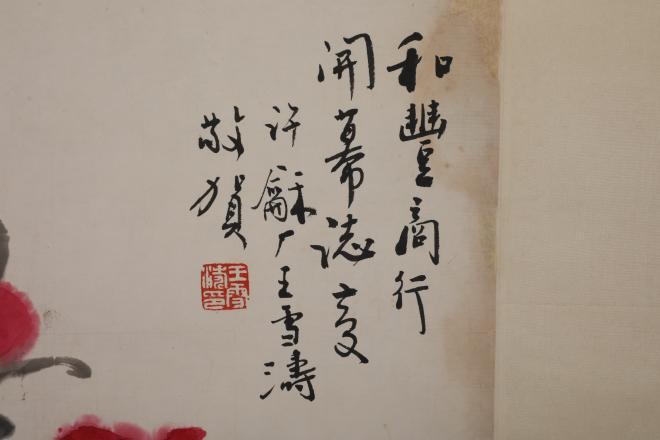 和豐商行
開幕誌慶
許龢厂王雪濤
敬賀
王雪濤印